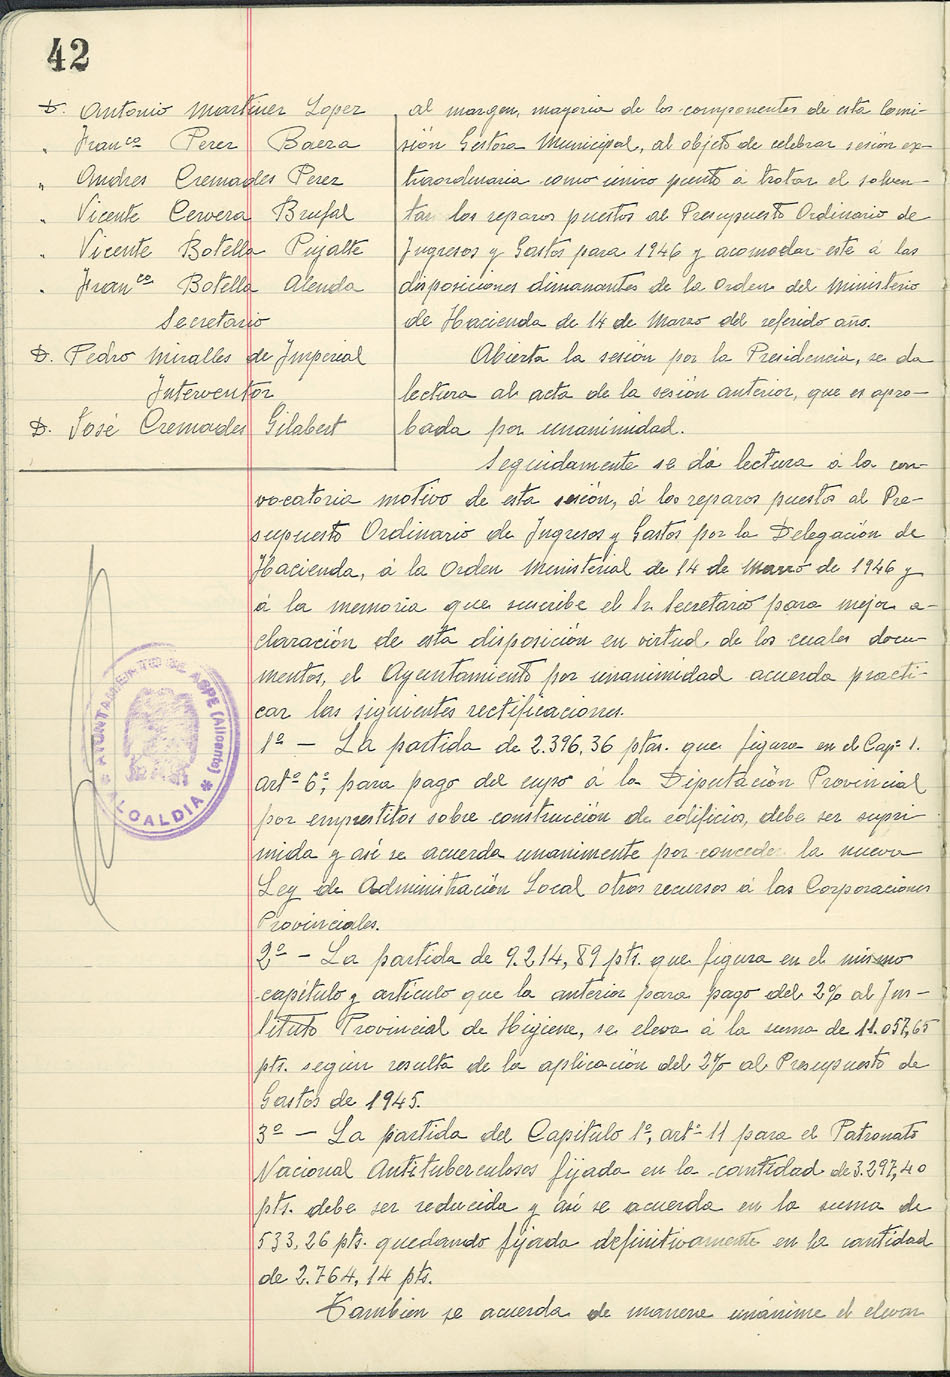 42
D. Antonio Martinez Lopez
" Franco Perez Baeza
" Andres Cremades Perez
" Vicente Cervera Brufal
" Vicente Botella Pujalte
" Franco Botella Alenda
Secretario
D. Pedro Miralles de Imperial
Interventor
D. José Cremades Gilabert
al margen, mayoria de los componentes de esta Comi-
sión Gestora Municipal, al objeto de celebrar sesión ex-
traordinaria como único punto á tratar el solven-
tar los reparos puestos al Presupuesto Ordinario de
Ingresos y Gastos para 1946 y acomodar este á las
disposiciones dimanantes de la Orden del Ministerio
de Hacienda de 14 de Marzo del referido año.
Abierta la sesión por la Presidencia, se da
lectura al acta de la sesión anterior, que es apro-
bada por unanimidad.
Seguidamente se dá lectura á la con-
vocatoria motivo de esta sesión, á los reparos puestos al Pre-
supuesto Ordinario de Ingresos y Gastos por la Delegación de
Hacienda, á la Orden Ministerial de 14 de Marzo de 1946 y
á la memoria que suscribe el Sr. Secretario para mejor a-
claración de esta disposición en virtud de los cuales docu-
mentos, el Ayuntamiento por unanimidad acuerda practi-
car las siguientes rectificaciones.
1º - La partida de 2.396,36 ptas. que figura en el Capº 1.
artº 6º, para pago del cupo á la Diputación Provincial
por empréstitos sobre construcción de edificios, debe ser supri-
mida y así se acuerda unanimente por conceder la nueva
Ley de Administración Local otros recursos á las Corporaciones
Provinciales.
2º - La partida de 9.214,89 pts. que figura en el mismo
capítulo y artículo que la anterior para pago del 2% al Ins-
tituto Provincial de Higiene, se eleva á la suma de 11.057,65
pts. según resulta de la aplicación del 2% al Presupuesto de
Gastos de 1945.
3º - La partida del Capítulo 1º, artº 11 para el Patronato
Nacional Antituberculosos fijada en la cantidad de 3.297,40
pts. debe ser reducida y así se acuerda en la suma de
533,26 pts. quedando fijada definitivamente en la cantidad
de 2.764,14 pts.
Tambien se acuerda de manera unánime el elevar
AYUNTAMIENTO DE ASPE (Alicante)
* ALCALDIA *